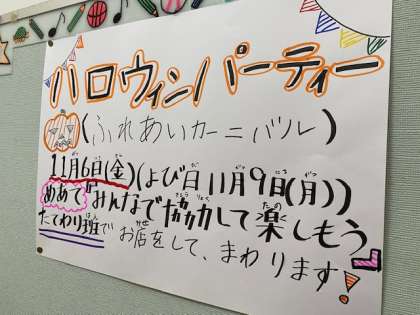 ハロウィンパーティー
(ふれあいカーニバル)
11月6日(金)(よび日11月9日(月))
めあて『みんなで協力して楽しもう』
たてわり班でお店をして、まわります!